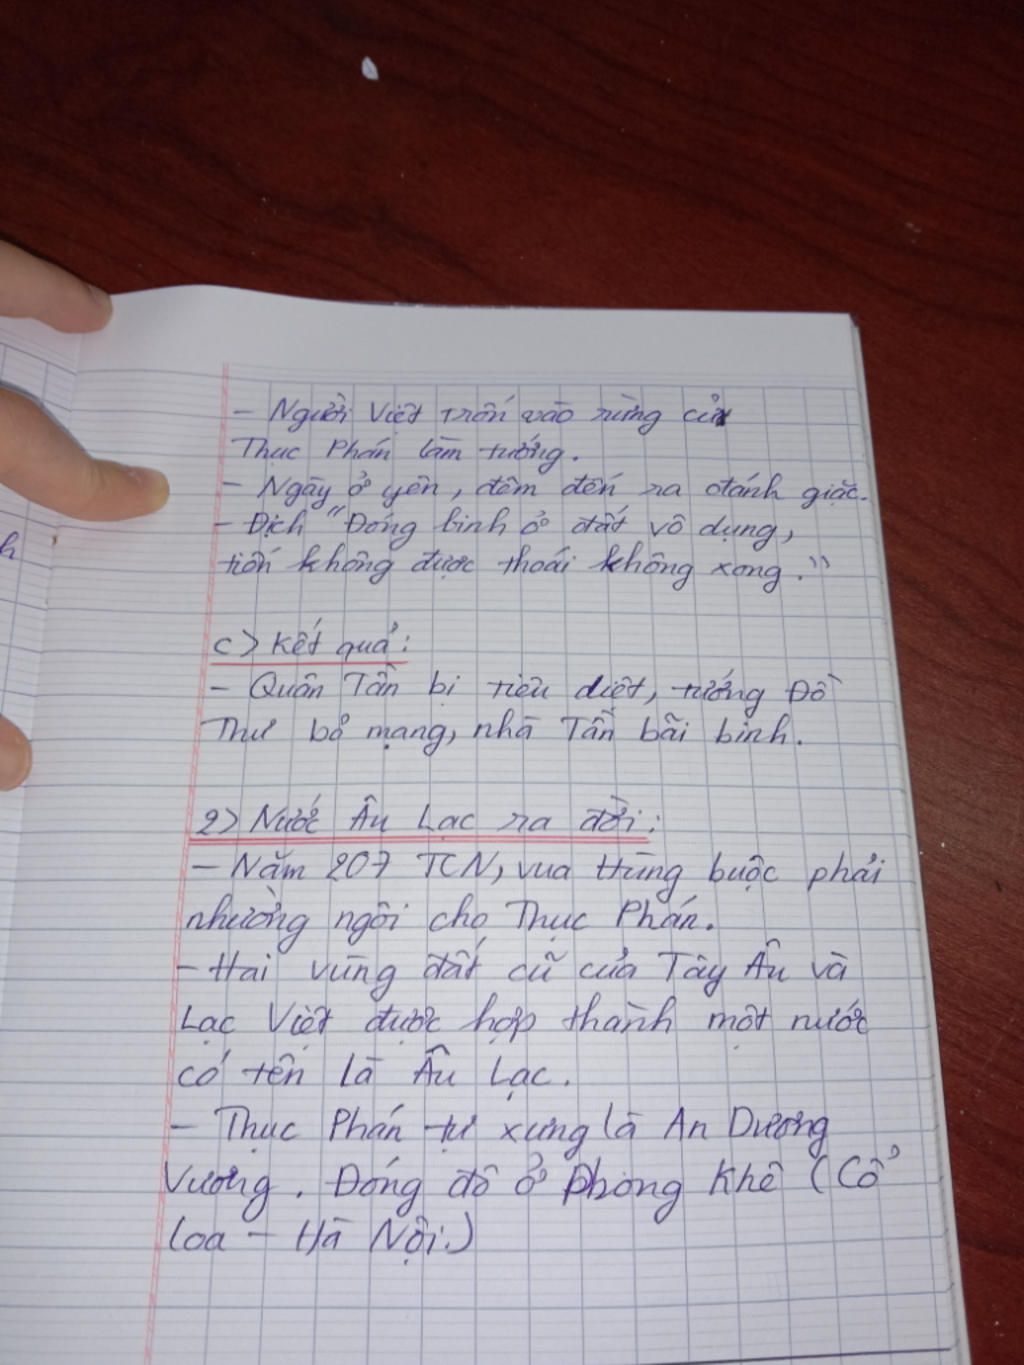 - Người Việt trốn vào rừng cử
Thục Phán làm tướng.
- Ngày ở yên, đêm đến ra đánh giặc.
- Địch "Đóng binh ở đất vô dụng,
tiến không được thoái không xong."
c> Kết quả:
- Quân Tần bị tiêu diệt, tướng Đồ
Thư bỏ mạng, nhà Tần bãi binh.
2> Nước Âu Lạc ra đời:
- Năm 207 TCN, vua Hùng buộc phải
nhường ngôi cho Thục Phán.
- Hai vùng đất cũ của Tây Âu và
Lạc Việt được hợp thành một nước
có tên là Âu Lạc.
- Thục Phán tự xưng là An Dương
Vương. Đóng đô ở Phong Khê (Cổ
Loa - Hà Nội.)